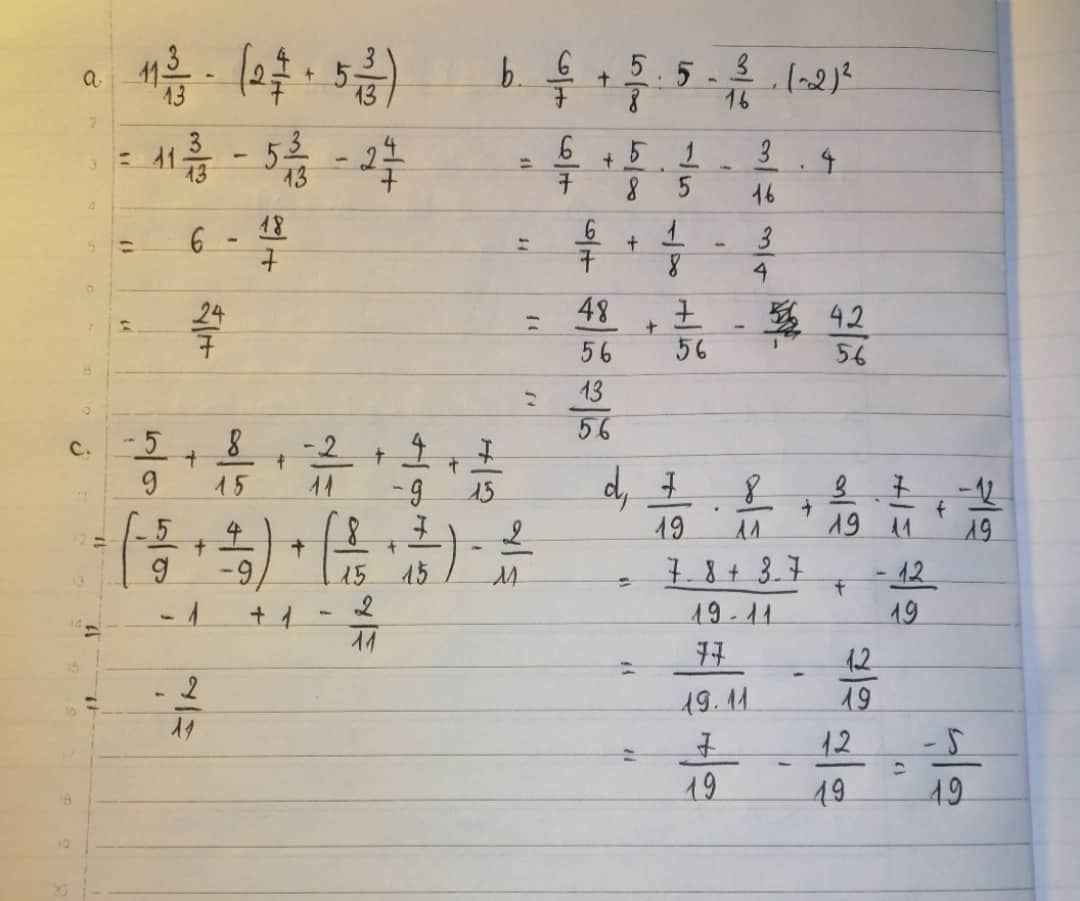 a. 11 3/13 - (2 4/7 + 5 3/13)
= 11 3/13 - 5 3/13 - 2 4/7
= 6 - 18/7
= 24/7
b. 6/7 + 5/8 : 5 - 3/16 . (-2)²
= 6/7 + 5/8 . 1/5 - 3/16 . 4
= 6/7 + 1/8 - 3/4
= 48/56 + 7/56 - 42/56
= 13/56
c. -5/9 + 8/15 + -2/11 + 4/-9 + 7/15
= (-5/9 + 4/-9) + (8/15 + 7/15) - 2/11
= -1 + 1 - 2/11
= -2/11
d, 7/19 . 8/11 + 3/19 . 7/11 + -12/19
= 7.8 + 3.7/19.11 + -12/19
= 77/19.11 - 12/19
= 7/19 - 12/19 = -5/19